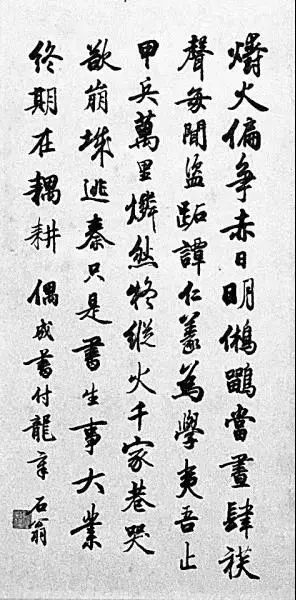 爝火偏爭赤日明鵂鶹當晝肆祅
聲每聞盜跖譚仁義為學夷吾止
甲兵萬里燐然將縱火千家巷哭
欲崩城逃秦只是書生事大業
終期在耦耕 偶成書付龍章 石翁